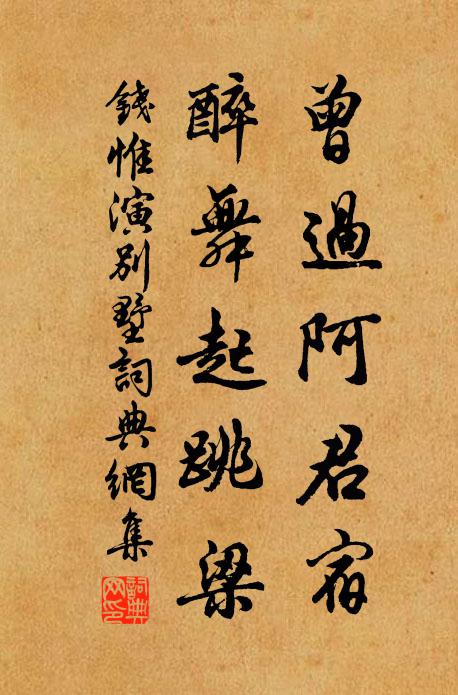 曾過阿君宿
醉舞起跳梁
錢惟演別墅詞典網集
詞典網印